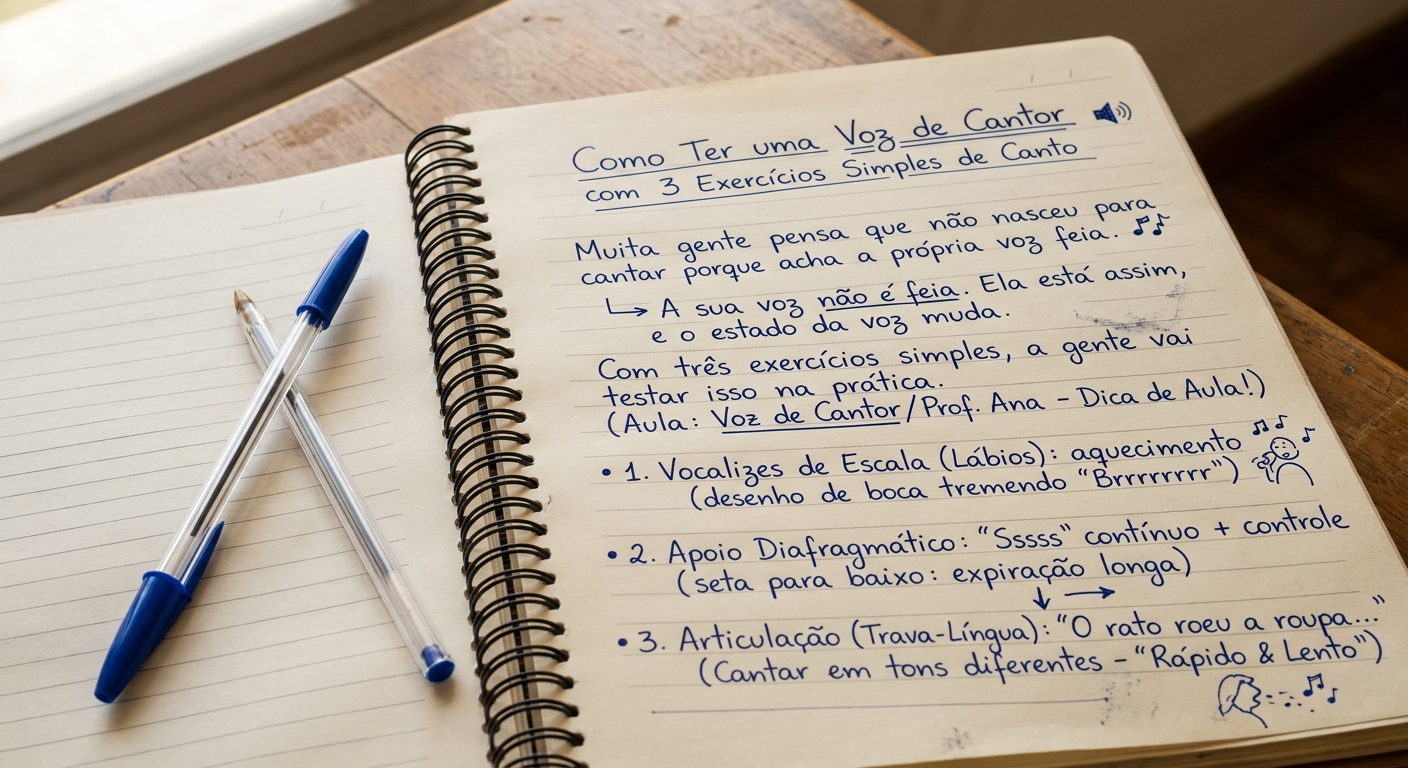 Como Ter uma Voz de Cantor
com 3 Exercícios Simples de Canto
Muita gente pensa que não nasceu para
cantar porque acha a própria voz feia.
↳ A sua voz não é feia. Ela está assim,
e o estado da voz muda.
Com três exercícios simples, a gente vai
testar isso na prática.
(Aula: Voz de Cantor/Prof. Ana - Dica de Aula!)
• 1. Vocalizes de Escala (Lábios): aquecimento
(desenho de boca tremendo "Brrrrrrrr")
• 2. Apoio Diafragmático: "Sssss" contínuo + controle
(seta para baixo: expiração longa)
↓ →
• 3. Articulação (Trava-Língua): "O rato roeu a roupa..."
(Cantar em tons diferentes - "Rápido & Lento")